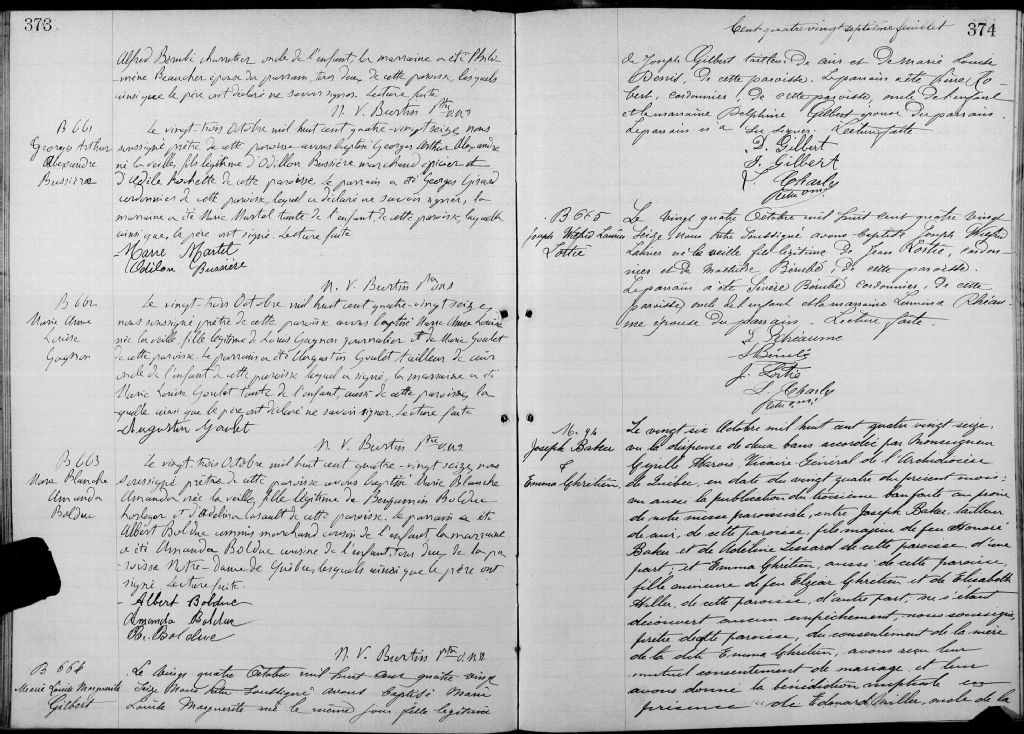 373
Alfred Berubé charretier oncle de l'enfant, la marraine a été Philo-
mène Beaucher épouse du parrain, tous deux de cette paroisse, lesquels
ainsi que le père ont déclaré ne savoir signer. Lecture faite
N. V. Burtin Ptre o.m.i.
B 661
Georges Arthur
Alexandre
Bussière
Le vingt-trois Octobre mil huit cent quatre-vingt seize nous
soussigné prêtre de cette paroisse avons baptisé Georges Arthur Alexandre
né la veille, fils légitime d'Odillon Bussière marchand épicier et
d'Adèle Rochette de cette paroisse. Le parrain a été Georges Girard
cordonnier de cette paroisse, lequel a déclaré ne savoir signer, la
marraine a été Marie Martel tante de l'enfant, de cette paroisse, laquelle
ainsi que le père ont signé. Lecture faite
Marie Martel
Odilon Bussière
N. V. Burtin Ptre o.m.i.
B 662
Marie Anne
Louise
Gagnon
Le vingt-trois Octobre mil huit cent quatre-vingt seize
nous soussigné prêtre de cette paroisse avons baptisé Marie Anne Louise
née la veille, fille légitime de Louis Gagnon journalier et de Marie Goulet
de cette paroisse. Le parrain a été Augustin Goulet, tailleur de cuir
oncle de l'enfant de cette paroisse lequel a signé, la marraine a été
Marie Louise Goulet tante de l'enfant, aussi de cette paroisse, la
quelle ainsi que le père ont déclaré ne savoir signer. Lecture faite
Augustin Goulet
N. V. Burtin Ptre o.m.i.
B 663
Marie Blanche
Amanda
Bolduc
Le vingt-trois Octobre mil huit cent quatre-vingt seize, nous
soussigné prêtre de cette paroisse avons baptisé Marie Blanche
Amanda, née la veille, fille légitime de Benjamin Bolduc
horloger et d'Adelina Casault de cette paroisse. Le parrain a été
Albert Bolduc commis marchand cousin de l'enfant la marraine
a été Amanda Bolduc cousine de l'enfant, tous deux de la pa-
roisse Notre-Dame de Québec, lesquels ainsi que le père ont
signé. Lecture faite.
Albert Bolduc
Amanda Bolduc
B. Bolduc
N. V. Burtin Ptre o.m.i.
B 664
Marie Louise Marguerite
Gilbert
Le vingt quatre Octobre mil huit cent quatre vingt
seize Nous Prêtre soussigné avons baptisé Marie
Louise Marguerite née le même jour fille légitime
Cent quatre vingt septième feuillet
374
de Joseph Gilbert tailleur de cuir et de Marie Louise
Denis, de cette paroisse. Le parrain a été Pierre
Gilbert, cordonnier, de cette paroisse, oncle de l'enfant
et la marraine Delphine Gilbert épouse du parrain.
Le parrain et a su signer. Lecture faite
D. Gilbert
J. Gilbert
L. Charles
Ptre o.m.i.
B 665
Joseph Wilfrid Laurier
Lortie
Le vingt quatre Octobre mil huit cent quatre vingt
seize, Nous Prêtre soussigné avons baptisé Joseph Wilfrid
Laurier né la veille fils légitime de Jean Lortie, cordon-
nier et de Mathilde Bérubé, de cette paroisse.
Le parrain a été Sévère Bérubé cordonnier, de cette
paroisse, oncle de l'enfant et la marraine Luména Rhéau-
me épouse du parrain. Lecture faite.
L. Rhéaume
S. Bérubé
J. Lortie
L. Charles
Ptre o.m.i.
M. 94
Joseph Baker
&
Emma Chrétien
Le vingt-six Octobre mil huit cent quatre vingt seize,
vu la dispense de deux bans accordée par Monseigneur
Cyrille Marois, Vicaire-Général de l'Archidiocèse
de Québec, en date du vingt quatre du présent mois;
vu aussi la publication du troisième ban faite au prône
de notre messe paroissiale, entre Joseph Baker, tailleur
de cuir, de cette paroisse, fils majeur de feu Honoré
Baker et de Adéline Lessard de cette paroisse, d'une
part, et Emma Chrétien, aussi de cette paroisse,
fille mineure de feu Elzéar Chrétien et de Elisabeth
Hiller, de cette paroisse, d'autre part, ne s'étant
découvert aucun empêchement, nous soussigné,
prêtre de cette paroisse, du consentement de la mère
de la dite Emma Chrétien, avons reçu leur
mutuel consentement de mariage, et leur
avons donné la bénédiction nuptiale en
présence de Edouard Miller, oncle de la